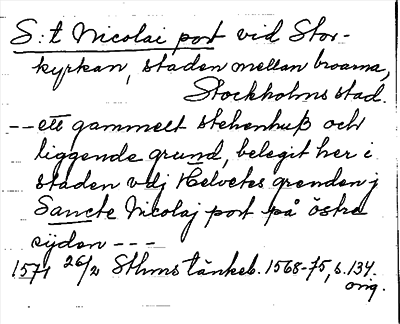 S:t Nicolai port vid Stor-
kyrkan, staden mellan broarna,
Stockholms stad.
-- ett gammelt stehenhuß och
liggende grund, belegit her i
staden vdj Helvetes grenden j
Sancte Nicolaj port på östre
sijden ---
1571 26/2 Sthms tänkeb. 1568-75, s. 134.
orig.